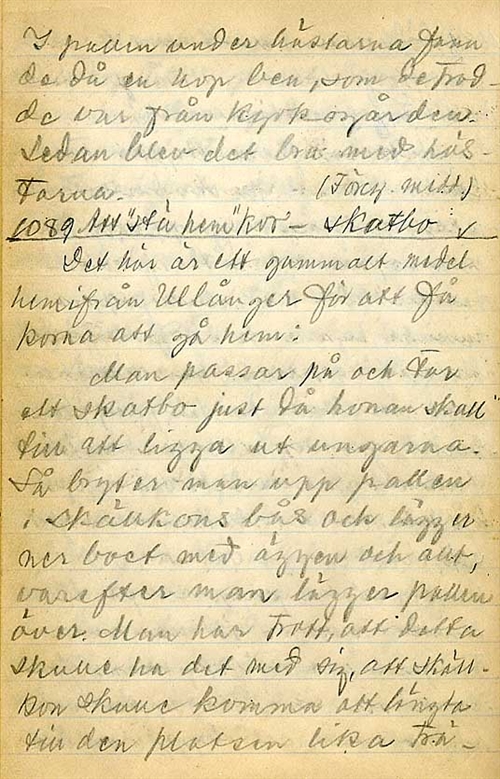 I pallen under hästarna fann
de då en hop ben, som de trod-
de var från kyrkogården.
Sedan blev det bra med häs-
tarna. (Förcy. mitt.)
1089 Att "stä hem" kor – skatbo √
Det här är ett gammalt medel
hemifrån Ullånger för att få
korna att gå hem:
Man passar på och tar
ett skatbo just då honan skall
till att ligga ut ungarna.
Så bryter man upp pallen
i skällkons bås och lägger
ner boet med äggen och allt,
varefter man lägger pallen
över. Man har trott, att detta
skulle ha det med sig, att skäll-
kon skulle komma att längta
till den platsen lika trä-